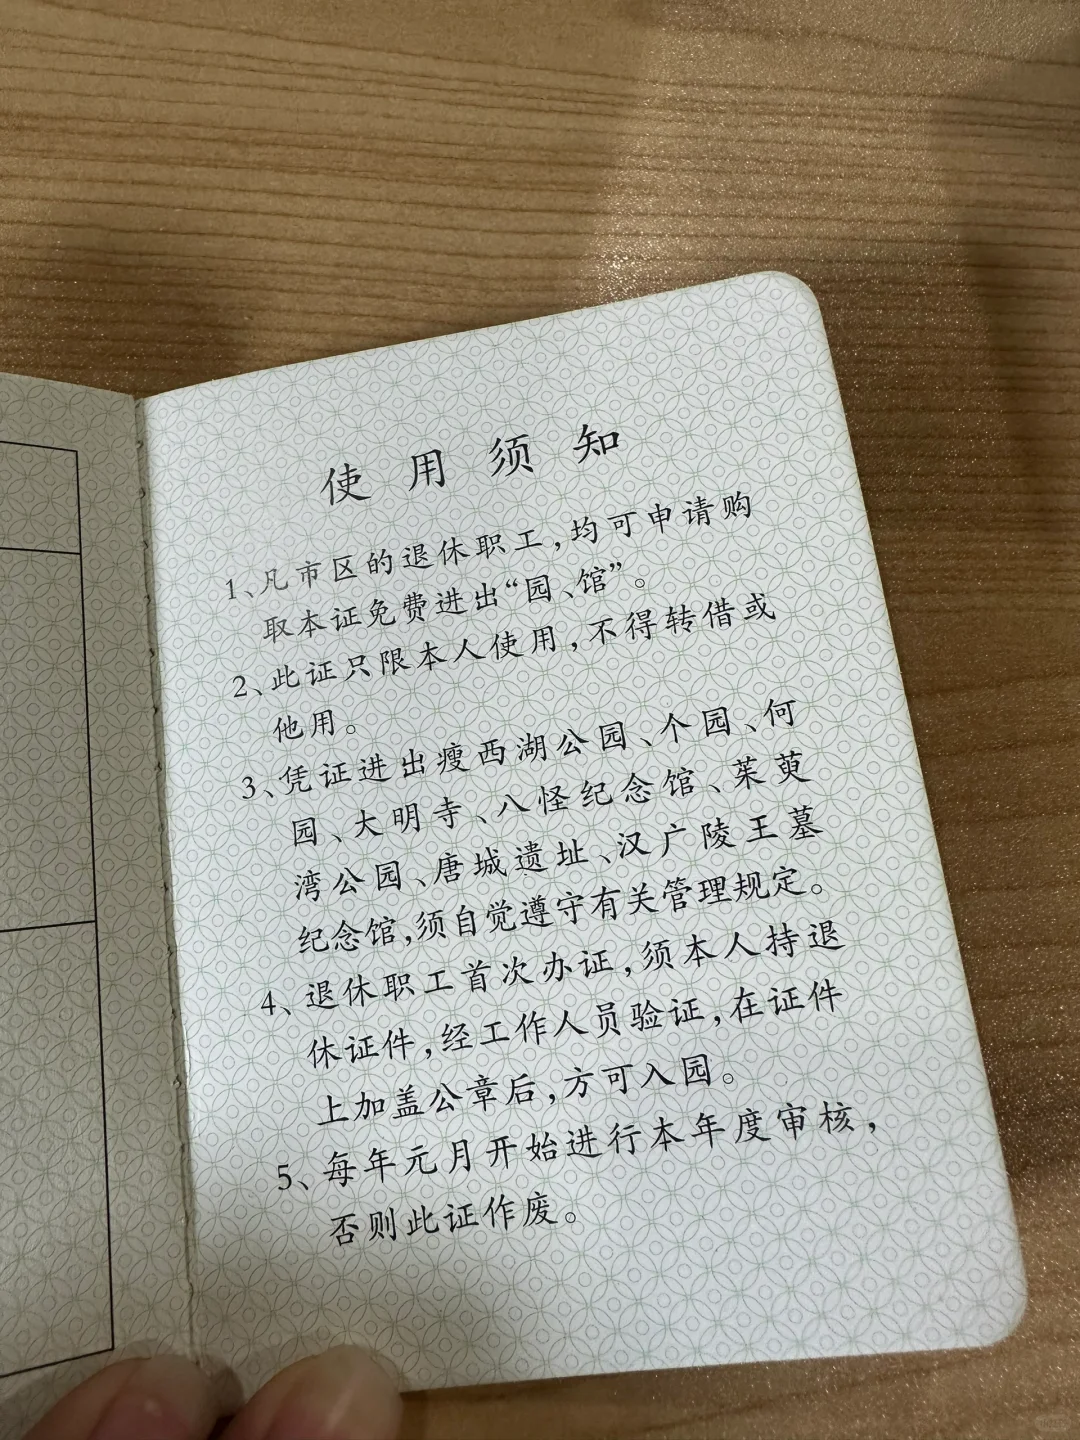 使用须知
1、凡市区的退休职工,均可申请购
取本证免费进出“园、馆”。
2、此证只限本人使用,不得转借或
他用。
3、凭证进出瘦西湖公园、个园、何
园、大明寺、八怪纪念馆、茱萸
湾公园、唐城遗址、汉广陵王墓
纪念馆,须自觉遵守有关管理规定。
4、退休职工首次办证,须本人持退
休证件,经工作人员验证,在证件
上加盖公章后,方可入园。
5、每年元月开始进行本年度审核,
否则此证作废。